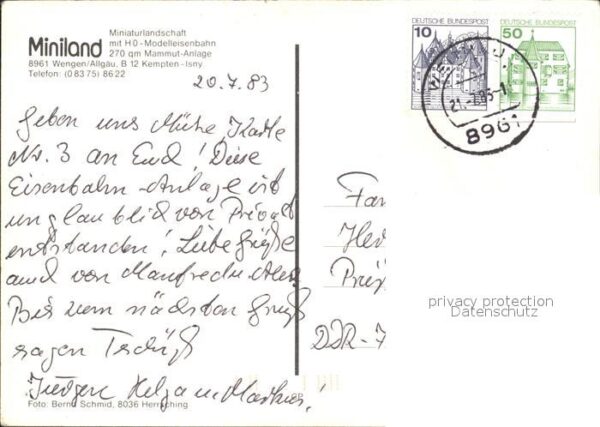 Miniland
Miniaturlandschaft
mit H0-Modelleisenbahn
270 qm Mammut-Anlage
8961 Wengen/Allgäu, B 12 Kempten-Isny
Telefon: (0 83 75) 86 22
20.7.83
Geben uns Mühe, Karte
Nr. 3 an Euch! Diese
Eisenbahn-Anlage ist
unglaublich von Privat
entstanden! Liebe Grüße
auch von Manfred u.
Bis zum nächsten Gruß
sagen Tschüß
Jürgen Helga u. Markus!
Foto: Bernd Schmid, 8036 Herrsching
DEUTSCHE BUNDESPOST
10
DEUTSCHE BUNDESPOST
50
8961
Fam
DDR-7
privacy protection
Datenschutz